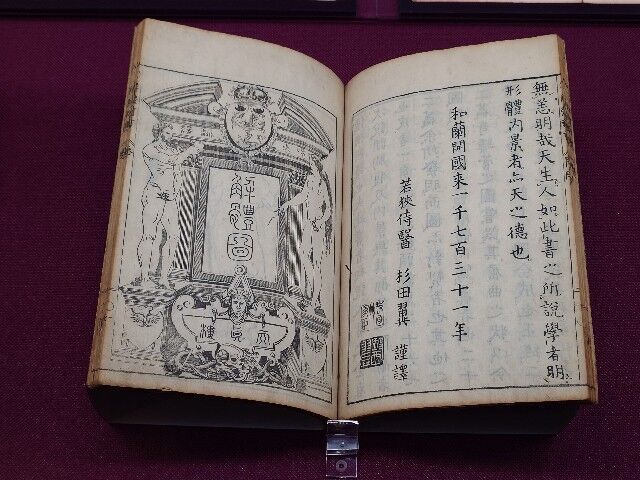 無恙明哉天生人如此書之所説學者明
形體内景者亦天之德也
和蘭開國來一千七百三十一年
若狹侍醫 杉田翼 謹譯
解體圖